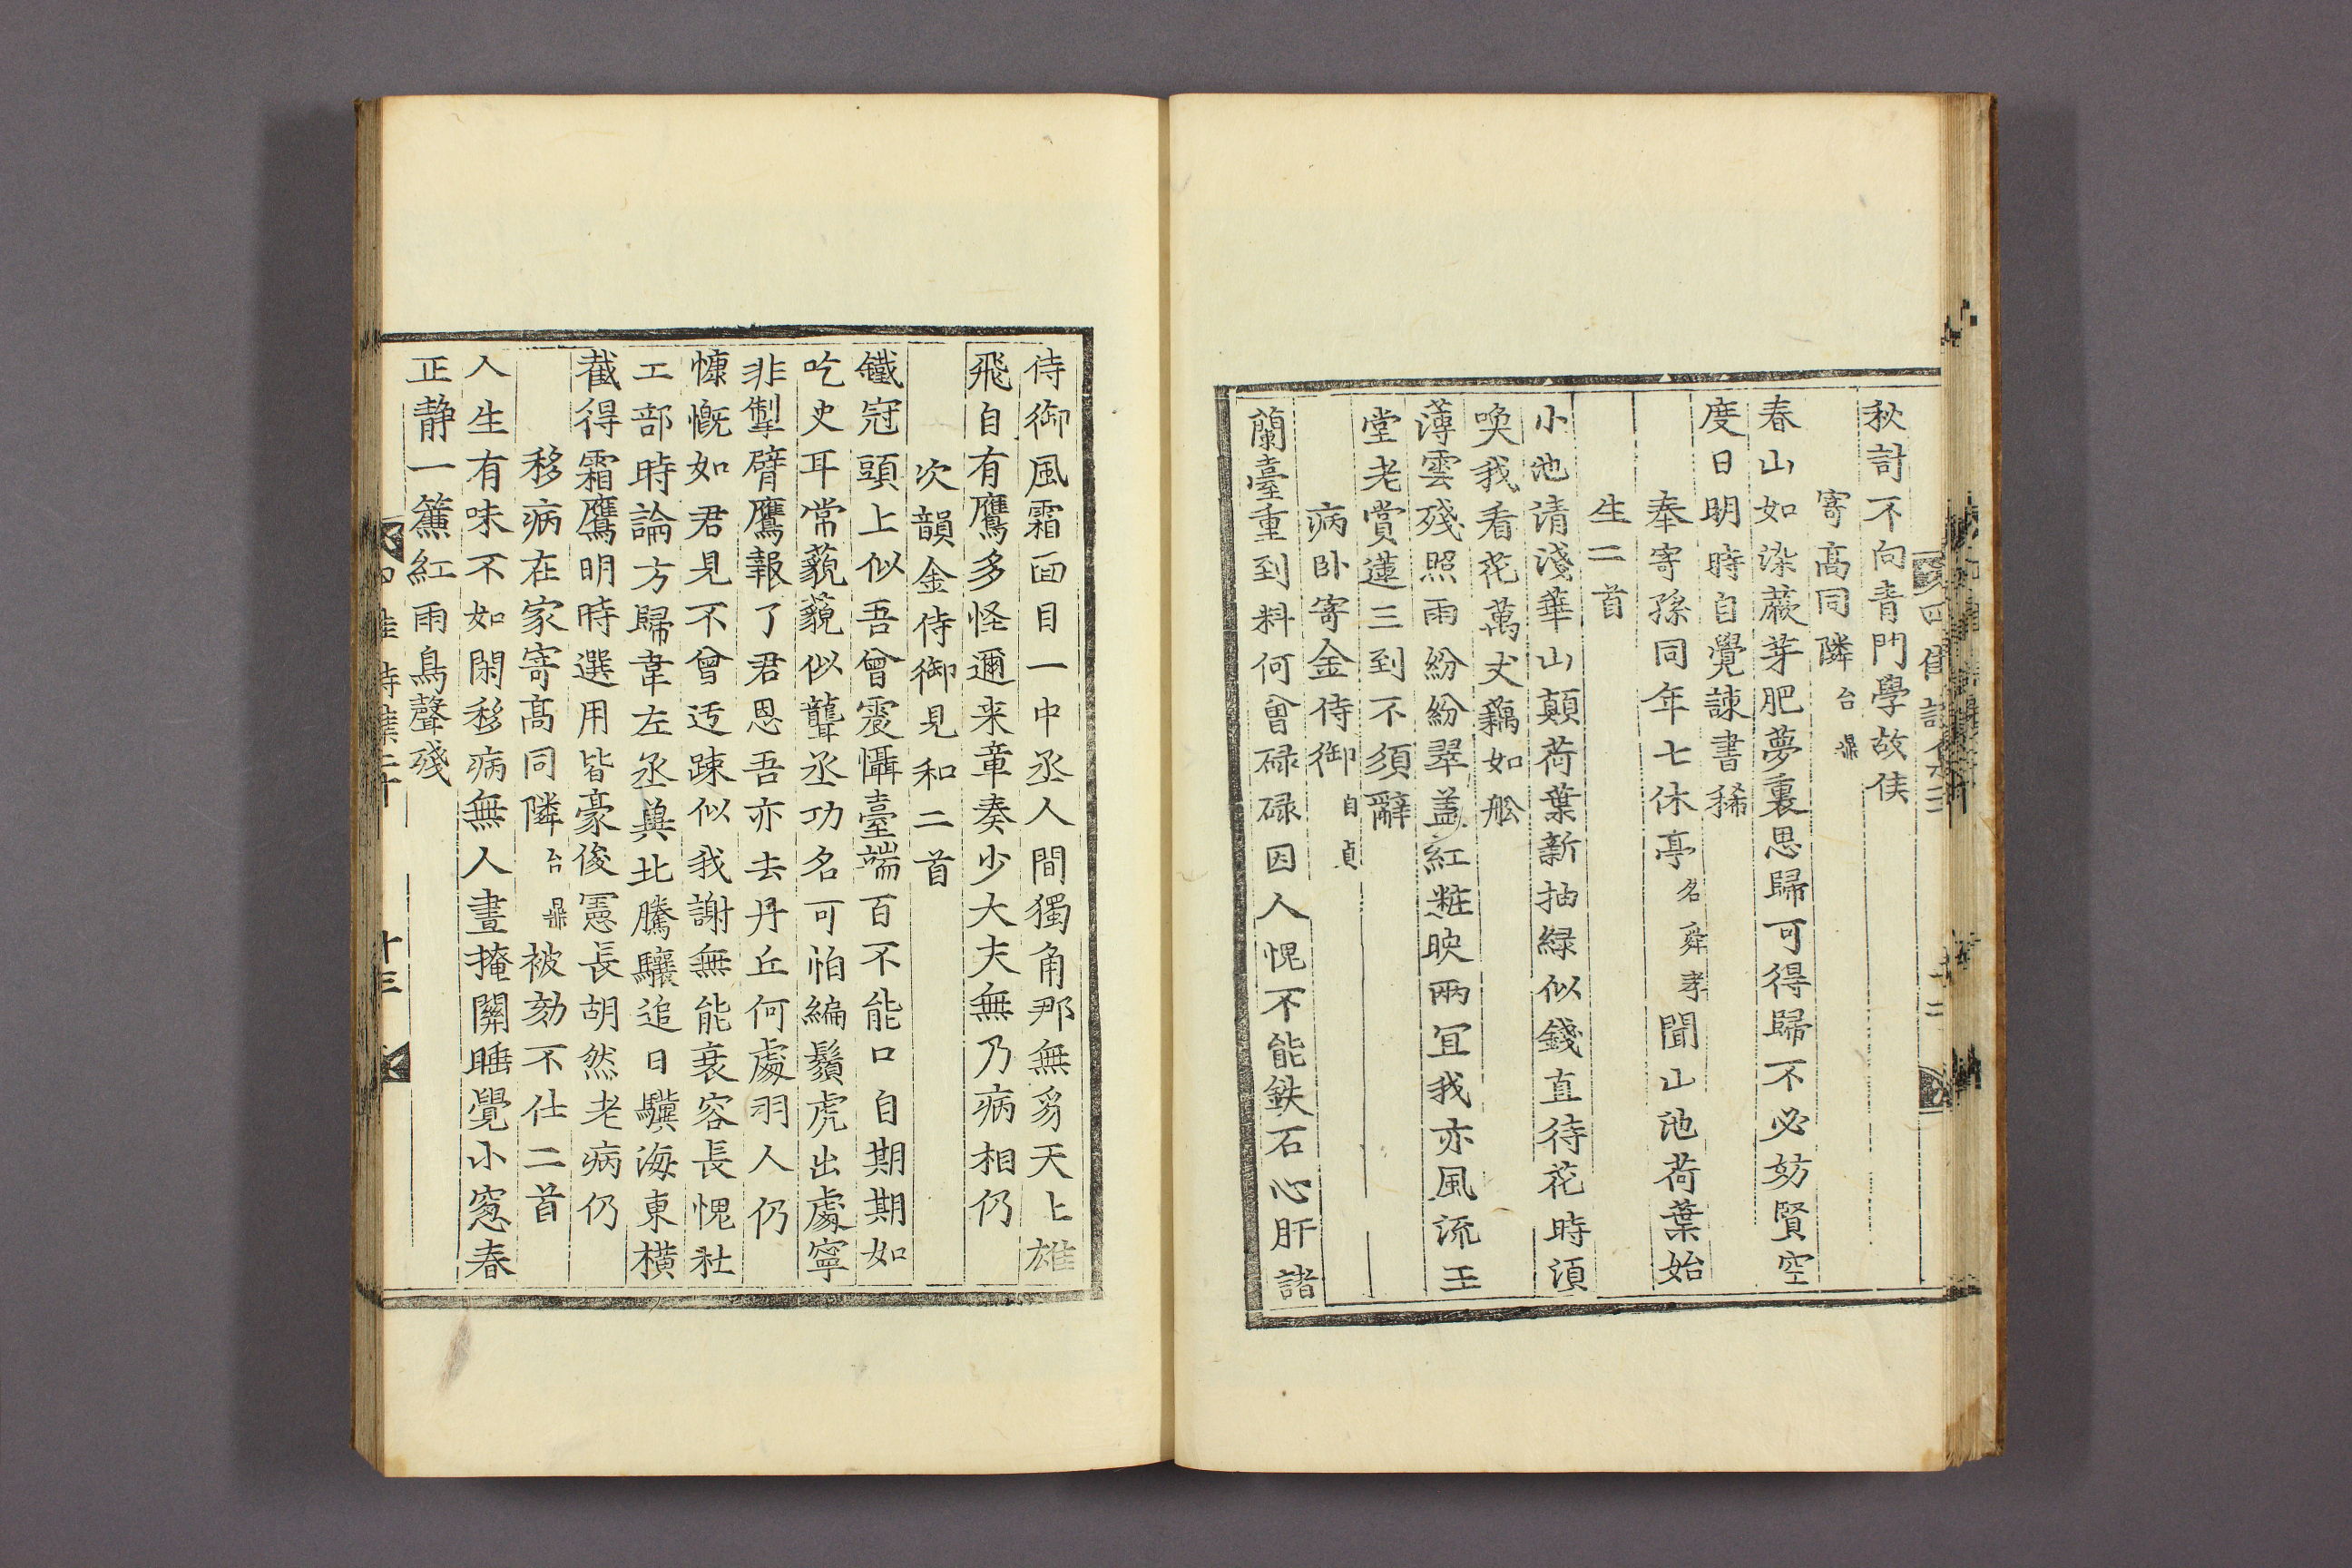 秋計不向青門學故侯
寄高同隣台鼎
春山如染蕨芽肥夢裏思歸可得歸不必妨賢空
度日明時自覺諫書稀
奉寄孫同年七休亭名舜孝聞山池荷葉始
生二首
小池清淺華山顛荷葉新抽緑似錢直待花時須
喚我看花萬丈藕如舩
薄雲殘照雨紛紛翠盖紅粧映兩冝我亦風流玉
堂老賞蓮三到不須辭
病卧寄金侍御自貞
蘭臺重到料何曾碌碌因人愧不能鉄石心肝諸
侍御風霜面目一中丞人間獨角那無豸天上雄
飛自有鷹多怪邇来章奏少大夫無乃病相仍
次韻金侍御見和二首
鐵冠頭上似吾曾震懾臺端百不能口自期期如
吃史耳常藐藐似聾丞功名可怕編鬚虎出處寧
非掣臂鷹報了君恩吾亦去丹丘何處羽人仍
慷慨如君見不曾迃踈似我謝無能衰容長愧杜
工部時論方歸韋左丞兾北騰驤追日驥海東橫
截得霜鷹明時選用皆豪俊憲長胡然老病仍
移病在家寄高同隣台鼎被劾不仕二首
人生有味不如閑移病無人晝掩關睡覺小窓春
正静一簾紅雨鳥聲殘
十三